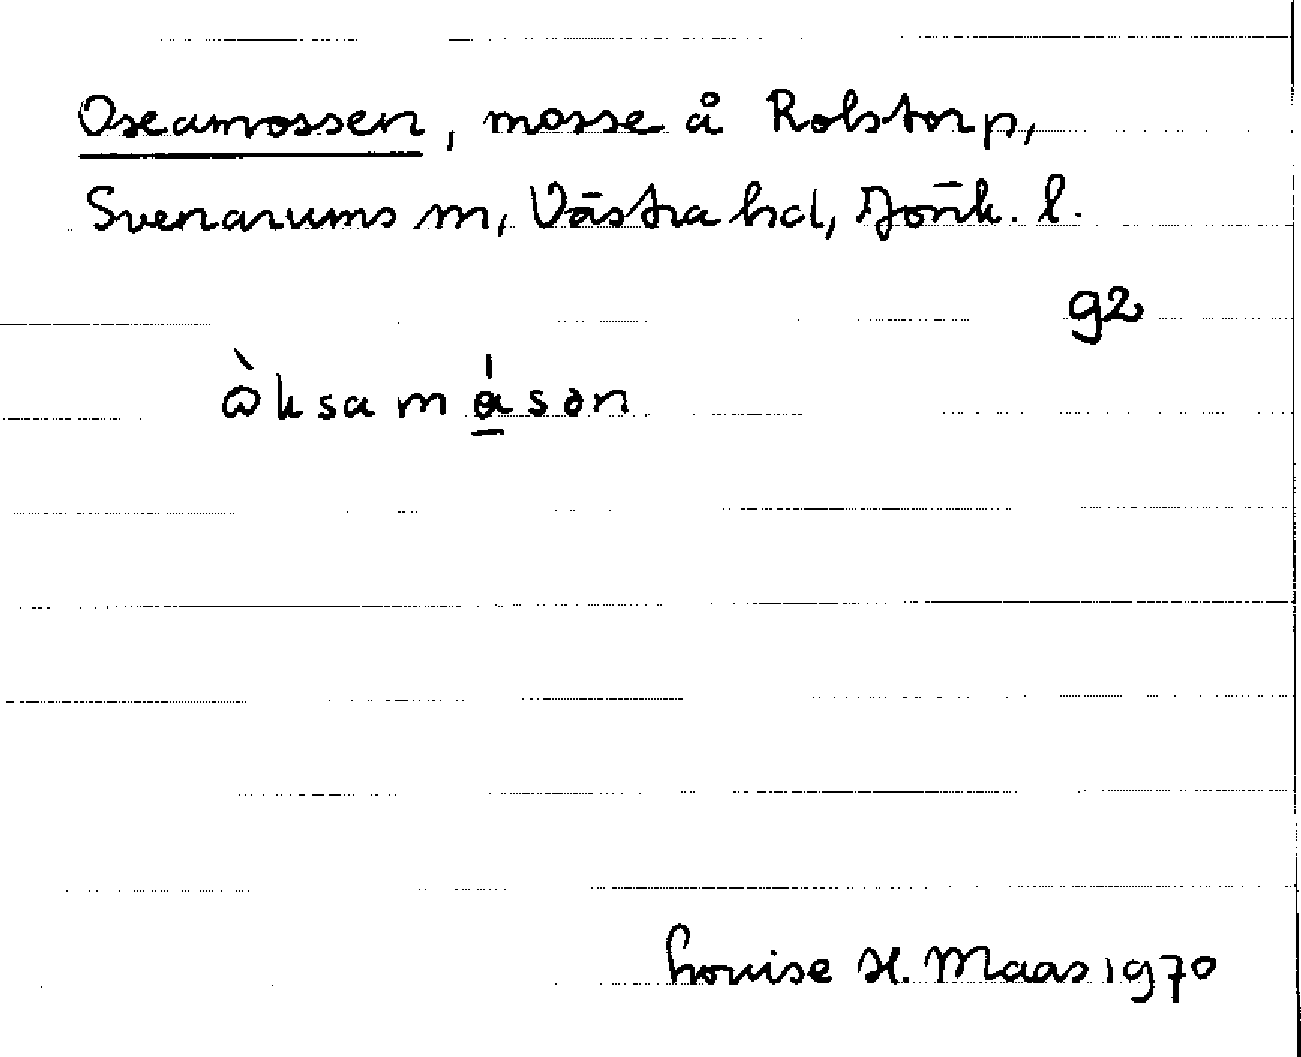 Oxeamossen, mosse å Rolstorp,
Svenarums sn, Västra hd, Jönk. l.
92
ὼksamåsən
Louise H. Maas 1970